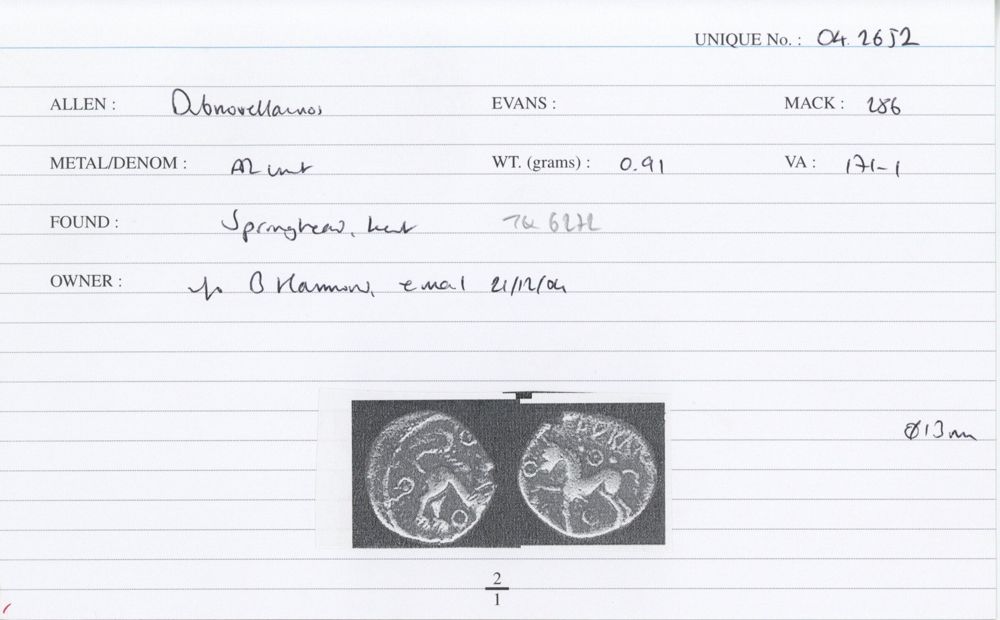 UNIQUE No. : 04.2652
ALLEN : Dubnovellaunos EVANS : MACK : 286
METAL/DENOM : AR unit WT. (grams) : 0.91 VA : 171-1
FOUND : Springhead, Kent TQ 6272
OWNER : B Hammond, email 21/12/04
Ø13mm
2
1